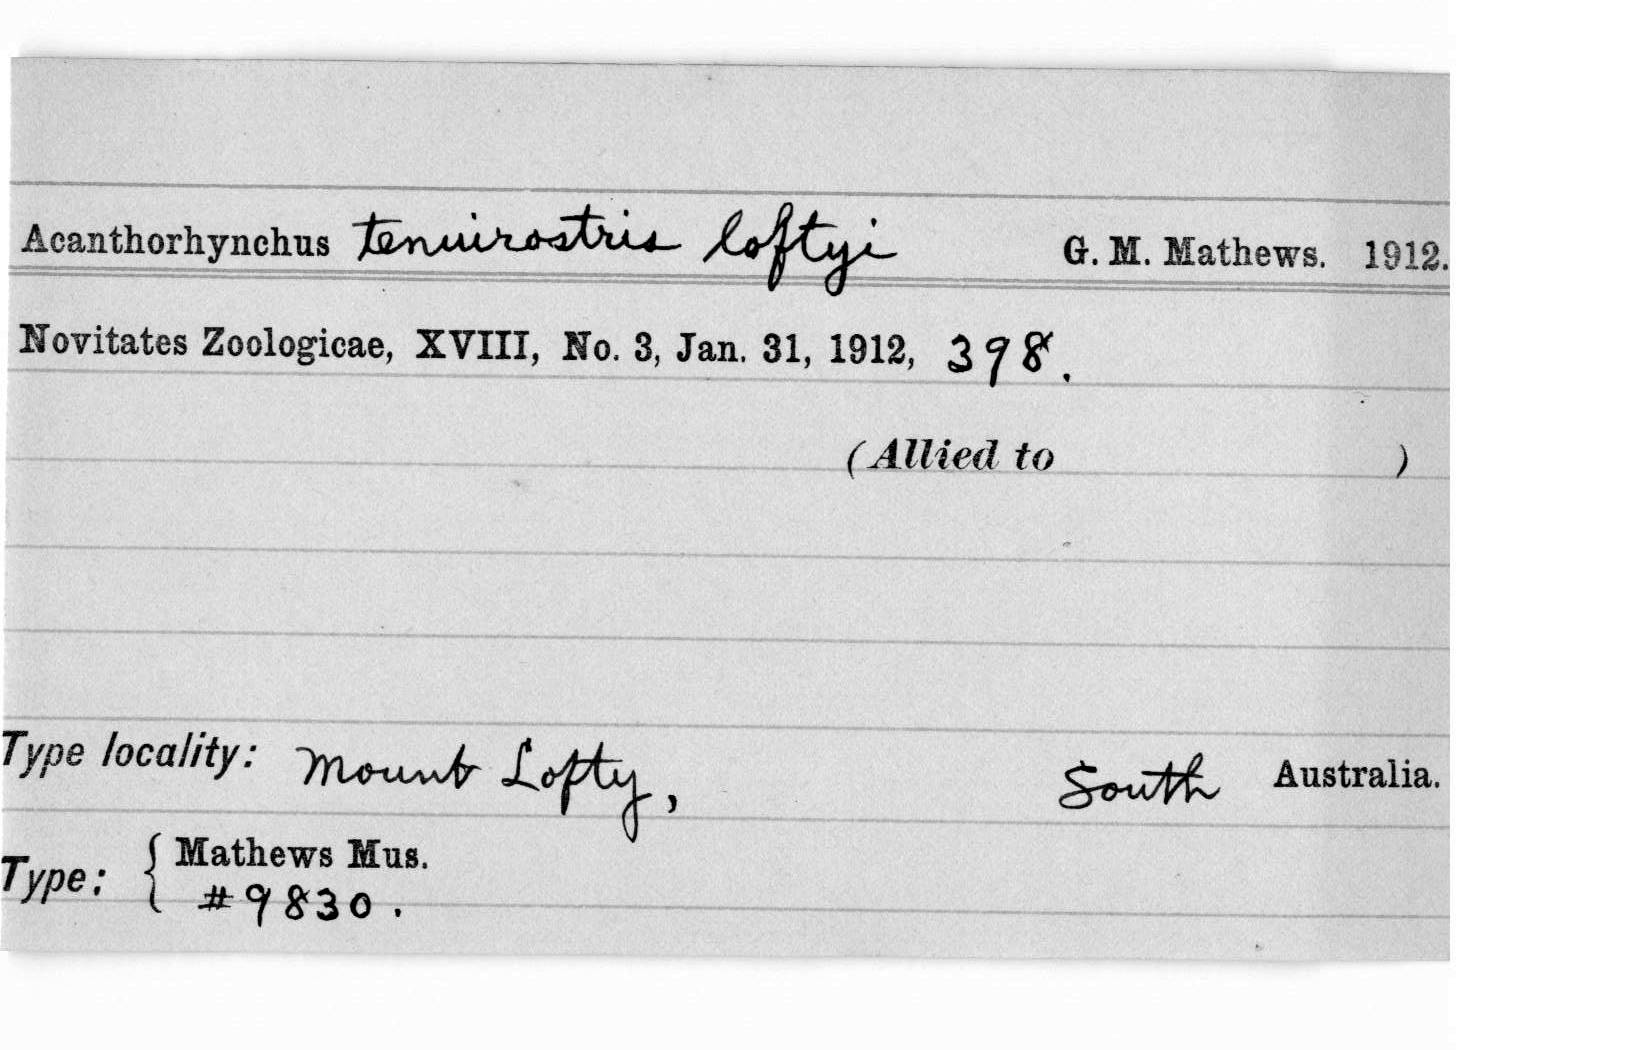 Acanthorhynchus tenuirostris loftyi G. M. Mathews. 1912.
Novitates Zoologicae, XVIII, No. 3, Jan. 31, 1912, 398.
(Allied to )
Type locality: Mount Lofty, South Australia.
Type: { Mathews Mus.
#9830.